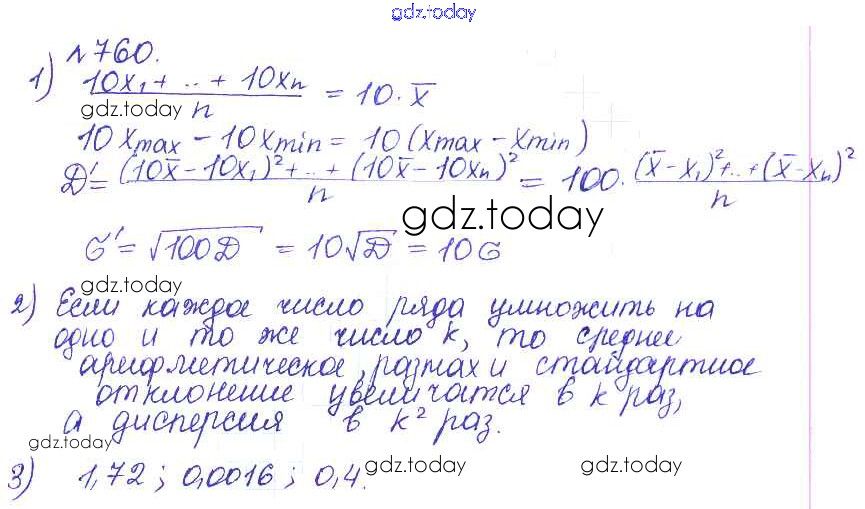 gdz.today
№760.
1) (10x₁ + .. + 10xₙ)/n = 10·x̄
gdz.today
10xmax − 10xmin = 10(xmax − xmin)
D' = ((10x̄ − 10x₁)² + .. + (10x̄ − 10xₙ)²)/n = 100·((x̄ − x₁)² + .. + (x̄ − xₙ)²)/n
gdz.today
σ' = √100D = 10√D = 10σ
gdz.today
2) Если каждое число ряда умножить на
одно и то же число k, то среднее
арифметическое, размах и стандартное
отклонение увеличатся в k раз,
а дисперсия в k² раз.
gdz.today
3) 1,72 ; 0,0016 ; 0,4.
gdz.today gdz.today